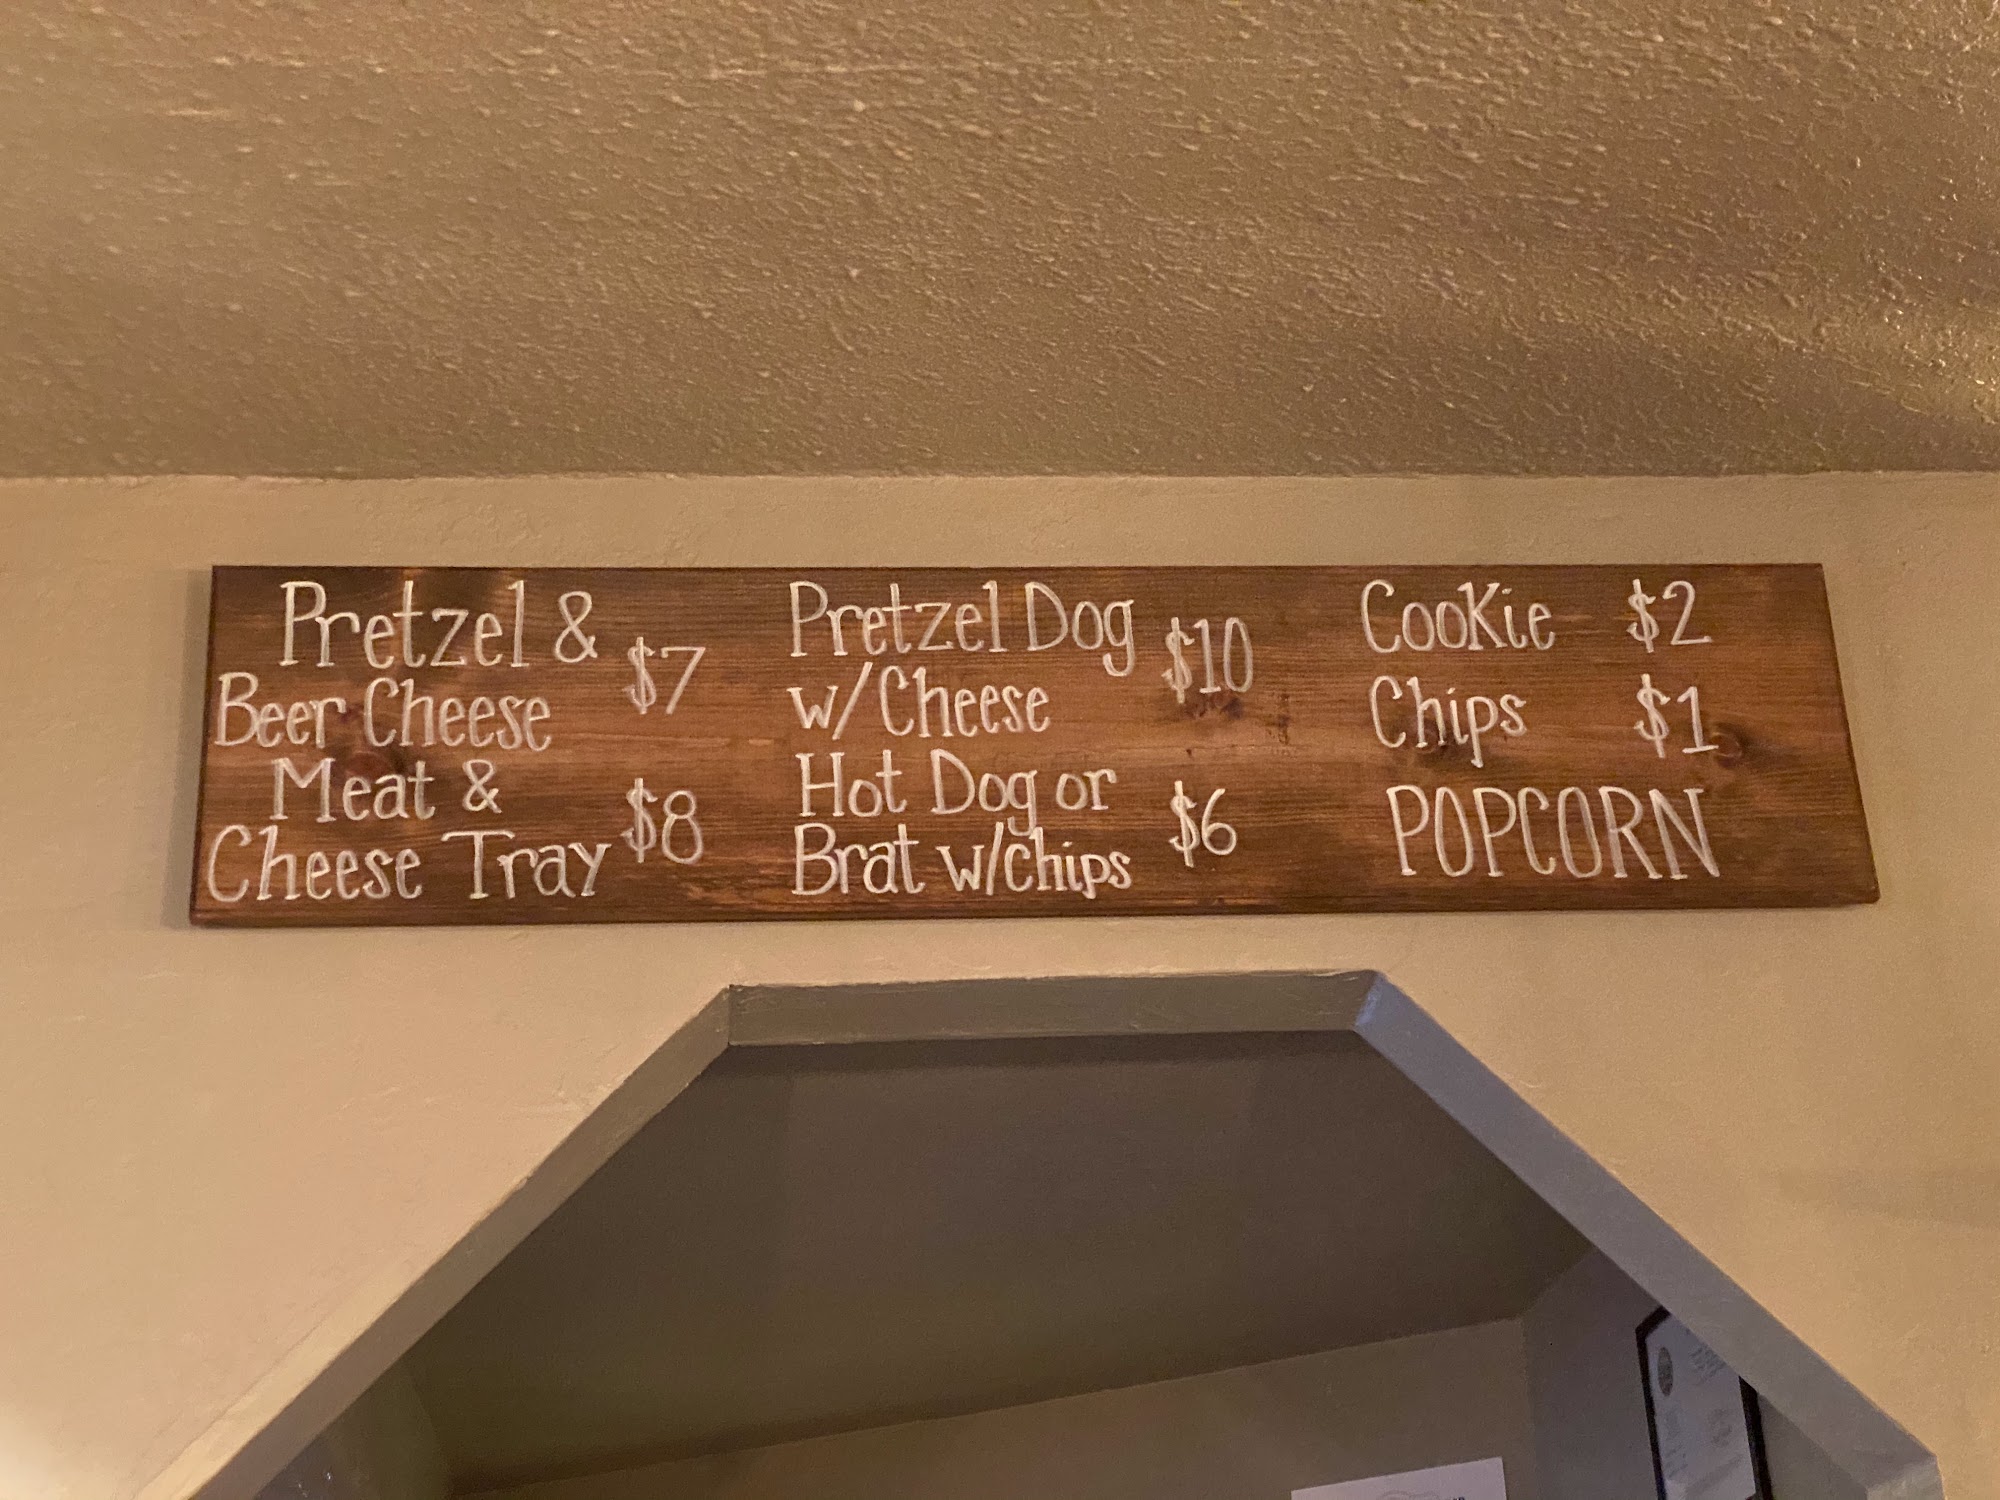 Pretzel &
Beer Cheese $7
Meat &
Cheese Tray $8
Pretzel Dog
w/Cheese $10
Hot Dog or
Brat w/chips $6
Cookie $2
Chips $1
POPCORN